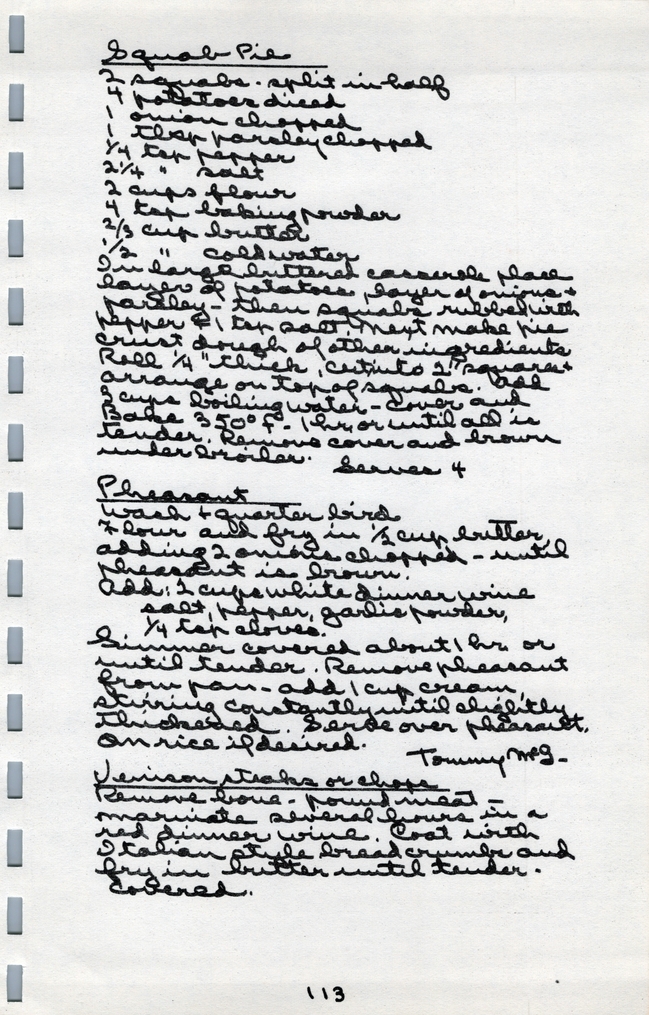 Squab Pie
2 squabs - split in half
4 potatoes diced
1 onion chopped
1 tbsp parsley chopped
1/4 tsp pepper
2 1/4 " salt
2 cups flour
4 tsp baking powder
2/3 cup butter
1/2 " cold water
In large buttered casserole place
layer of potatoes, layer of onions +
parsley - then squabs rubbed with
pepper & 1 tsp salt. Next make pie
crust dough of other ingredients
Roll 1/4" thick, cut into 2" squares +
arrange on top of squabs. Add
3 cups boiling water - cover and
Bake 350°F - 1 hr. or until all is
tender. Remove cover and brown
under broiler. Serves 4
Pheasant
Wash + quarter bird
Flour and fry in 1/2 cup butter,
adding 2 onions chopped - until
pheasant is brown.
Add: 2 cups white dinner wine
salt, pepper, garlic powder,
1/4 tsp cloves.
Simmer covered about 1 hr. or
until tender. Remove pheasant
from pan - add 1 cup cream,
stirring constantly until slightly
thickened. Serve over pheasant.
On rice if desired.
Tommy McG-
Venison steaks or chops
Remove bone - pound meat -
marinate several hours in a
red dinner wine. Coat with
Italian style bread crumbs and
fry in butter until tender.
Covered.
113